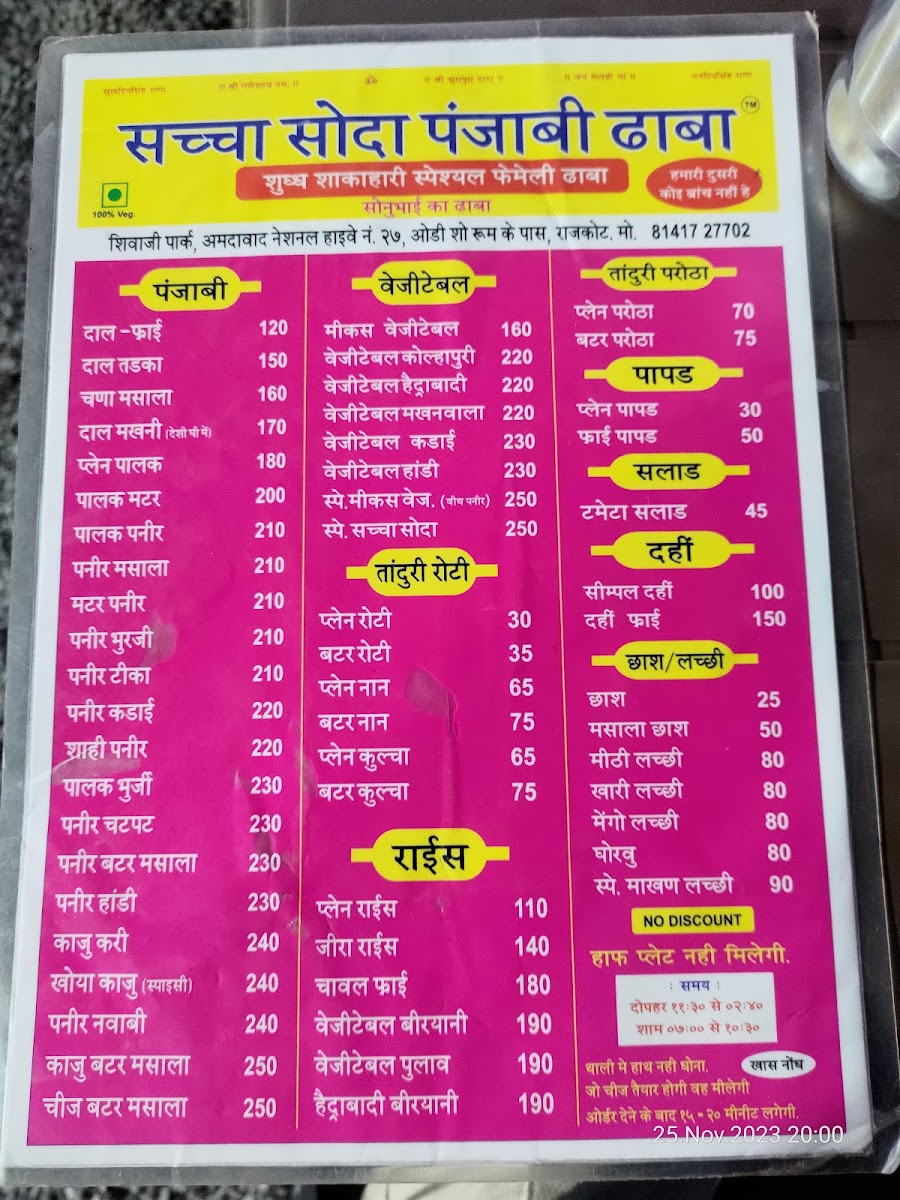 सुखदिपसिंह राणा
॥ श्री गणेशाय नमः ॥
ॐ
॥ श्री सुरापुरा दादा ॥
॥ जय मेलडी माँ ॥
सच्चा सोदा पंजाबी ढाबा TM
शुध्ध शाकाहारी स्पेश्यल फेमेली ढाबा
हमारी दुसरी
कोइ ब्रांच नहीं हे
100% Veg.
सोनुभाई का ढाबा
शिवाजी पार्क, अमदावाद नेशनल हाइवे नं. २७, ओडी शो रूम के पास, राजकोट. मो. 81417 27702
पंजाबी
दाल -फ्राई 120
दाल तडका 150
चणा मसाला 160
दाल मखनी (देशी घी में) 170
प्लेन पालक 180
पालक मटर 200
पालक पनीर 210
पनीर मसाला 210
मटर पनीर 210
पनीर भुरजी 210
पनीर टीका 210
पनीर कडाई 220
शाही पनीर 220
पालक भुर्जी 230
पनीर चटपट 230
पनीर बटर मसाला 230
पनीर हांडी 230
काजु करी 240
खोया काजु (स्पाइसी) 240
पनीर नवाबी 240
काजु बटर मसाला 250
चीज बटर मसाला 250
वेजीटेबल
मीकस वेजीटेबल 160
वेजीटेबल कोल्हापुरी 220
वेजीटेबल हैद्राबादी 220
वेजीटेबल मखनवाला 220
वेजीटेबल कडाई 230
वेजीटेबल हांडी 230
स्पे.मीकस वेज. (वीथ पनीर) 250
स्पे. सच्चा सोदा 250
तांदुरी रोटी
प्लेन रोटी 30
बटर रोटी 35
प्लेन नान 65
बटर नान 75
प्लेन कुल्चा 65
बटर कुल्चा 75
राईस
प्लेन राईस 110
जीरा राईस 140
चावल फ्राई 180
वेजीटेबल बीरयानी 190
वेजीटेबल पुलाव 190
हैद्राबादी बीरयानी 190
तांदुरी परोठा
प्लेन परोठा 70
बटर परोठा 75
पापड
प्लेन पापड 30
फ्राई पापड 50
सलाड
टमेटा सलाड 45
दहीं
सीम्पल दहीं 100
दहीं फ्राई 150
छाश/लच्छी
छाश 25
मसाला छाश 50
मीठी लच्छी 80
खारी लच्छी 80
मेंगो लच्छी 80
घोरवु 80
स्पे. माखण लच्छी 90
NO DISCOUNT
हाफ प्लेट नही मिलेगी.
: समय :
दोपहर ११:३० से ०२:४०
शाम ०७:०० से १०:३०
थाली मे हाथ नही धोना. खास नोंध
जो चीज तैयार होगी वह मीलेगी
ओर्डर देने के बाद १५ - २० मीनीट लगेगी.
25.Nov.2023 20:00